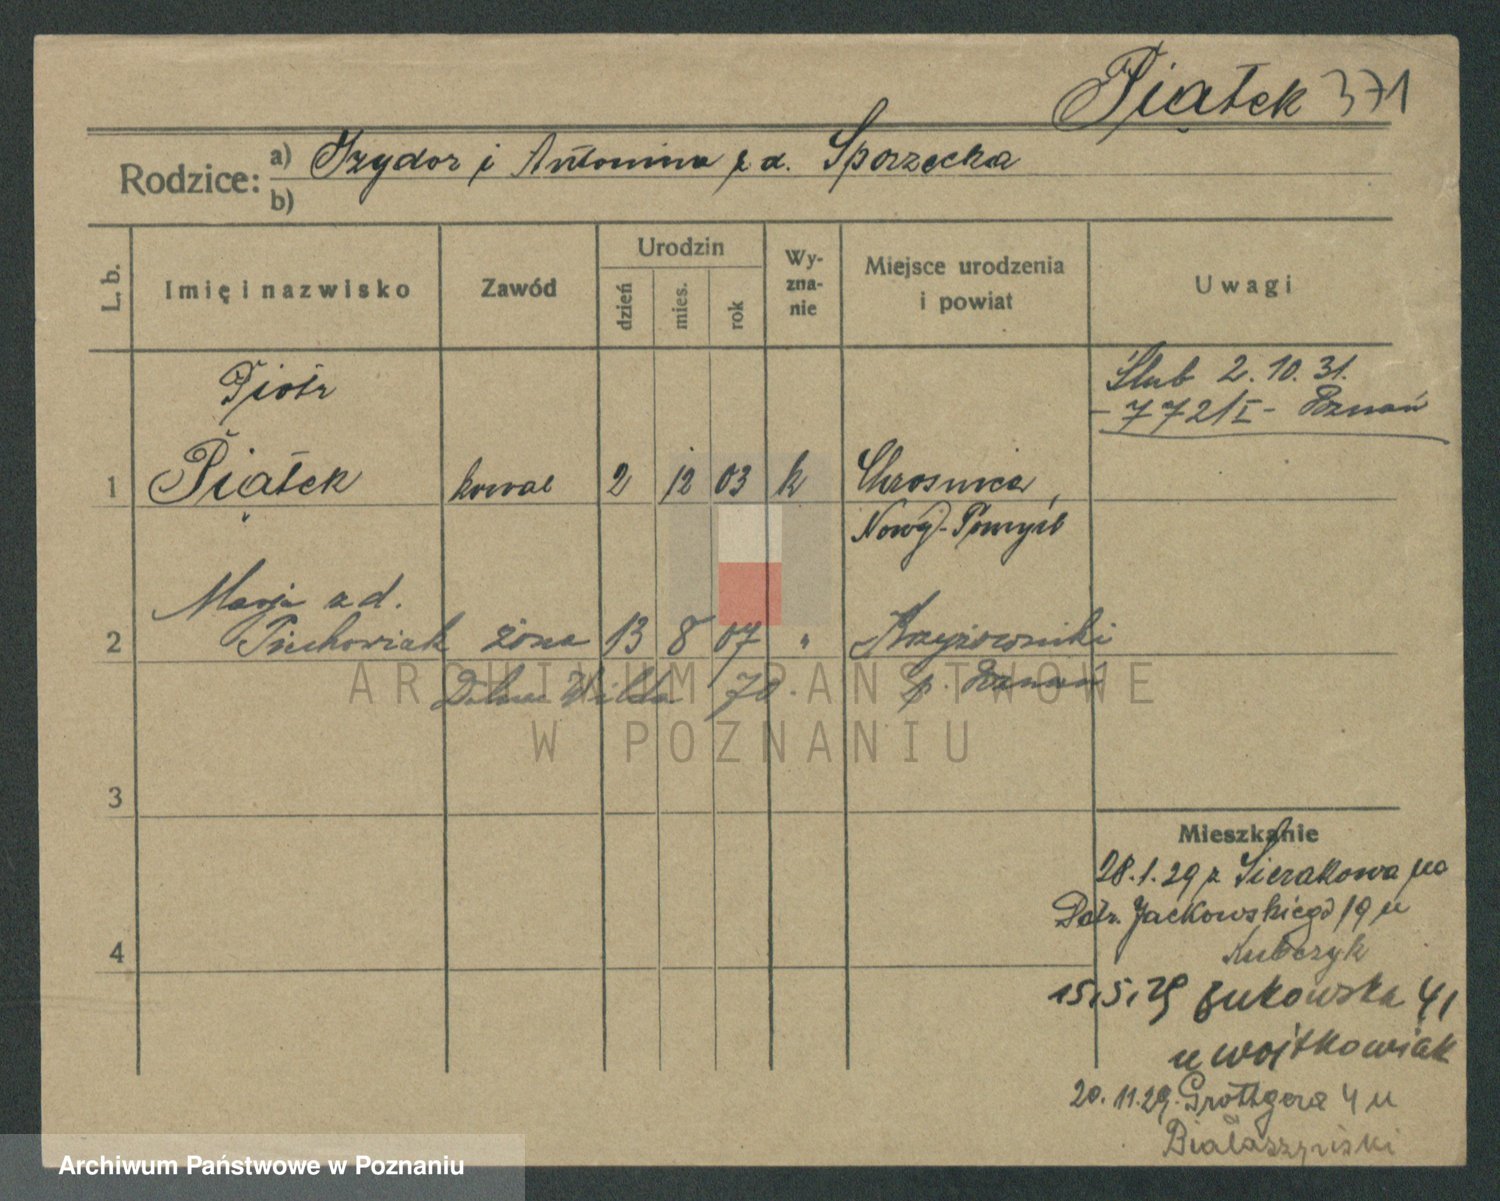 Piątek 371
Rodzice: a) Izydor i Antonina z d. Sporzecka
b)
L. b.
Imię i nazwisko
Zawód
Urodzin
dzień
mies.
rok
Wy-
zna-
nie
Miejsce urodzenia
i powiat
Uwagi
Piotr
Ślub 2. 10. 31.
- 772/I - Poznań
1 Piątek kowal 2 12 03 k Chrosnica,
Nowy-Tomyśl
Marja z d.
2 Piechowiak żona 13 8 07 " Krzyżowniki
Dolna Wilda 70. p. Poznań
ARCHIWUM PAŃSTWOWE
W POZNANIU
3
Mieszkanie
28.1.29 z Sierakowa po
Patr. Jackowskiego 19 u
4
Kubczyk
15.5.29 Bukowska 41
u Wojtkowiak
20. 11.29. Grottgera 4 u
Białaszyński
Archiwum Państwowe w Poznaniu